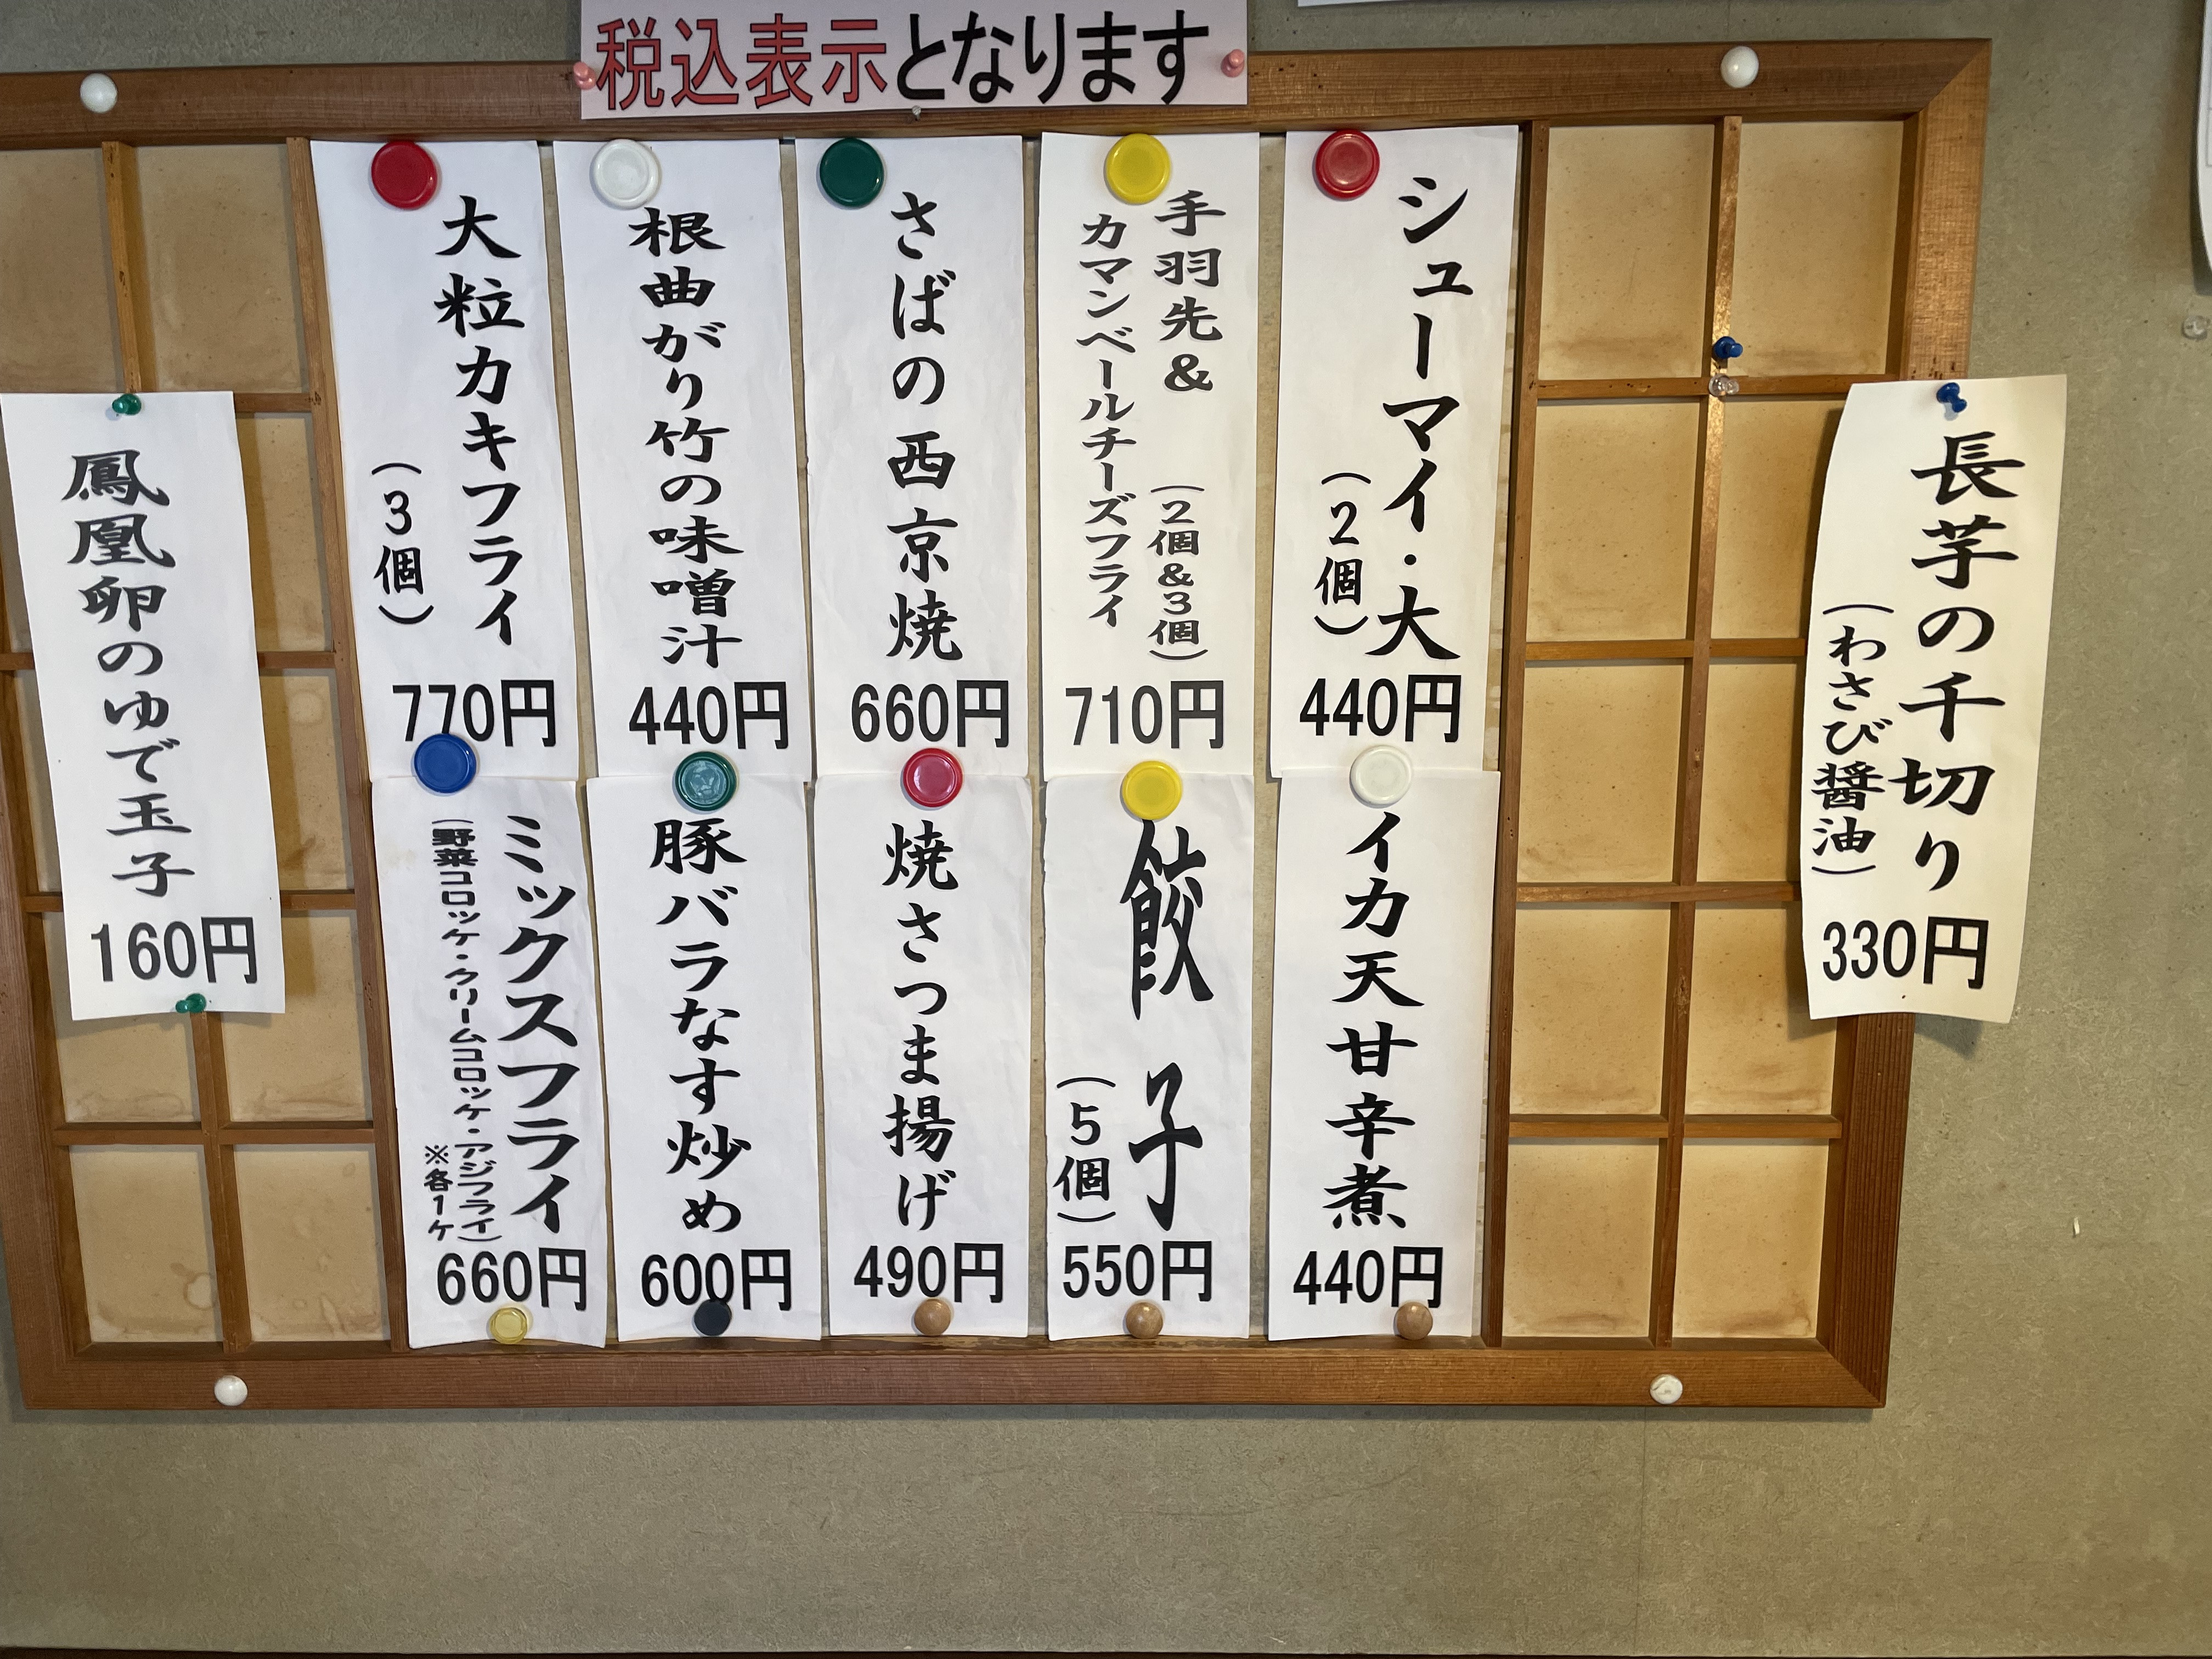 税込表示となります
長芋の千切り
（わさび醤油）
330円
シューマイ・大
（2個）
440円
手羽先&
（2個&3個）
カマンベールチーズフライ
710円
さばの西京焼
660円
根曲がり竹の味噌汁
440円
大粒カキフライ
（3個）
770円
イカ天甘辛煮
440円
餃子
（5個）
550円
焼さつま揚げ
490円
豚バラなす炒め
600円
ミックスフライ
（野菜コロッケ・クリームコロッケ・アジフライ）
※各1ケ
660円
鳳凰卵のゆで玉子
160円